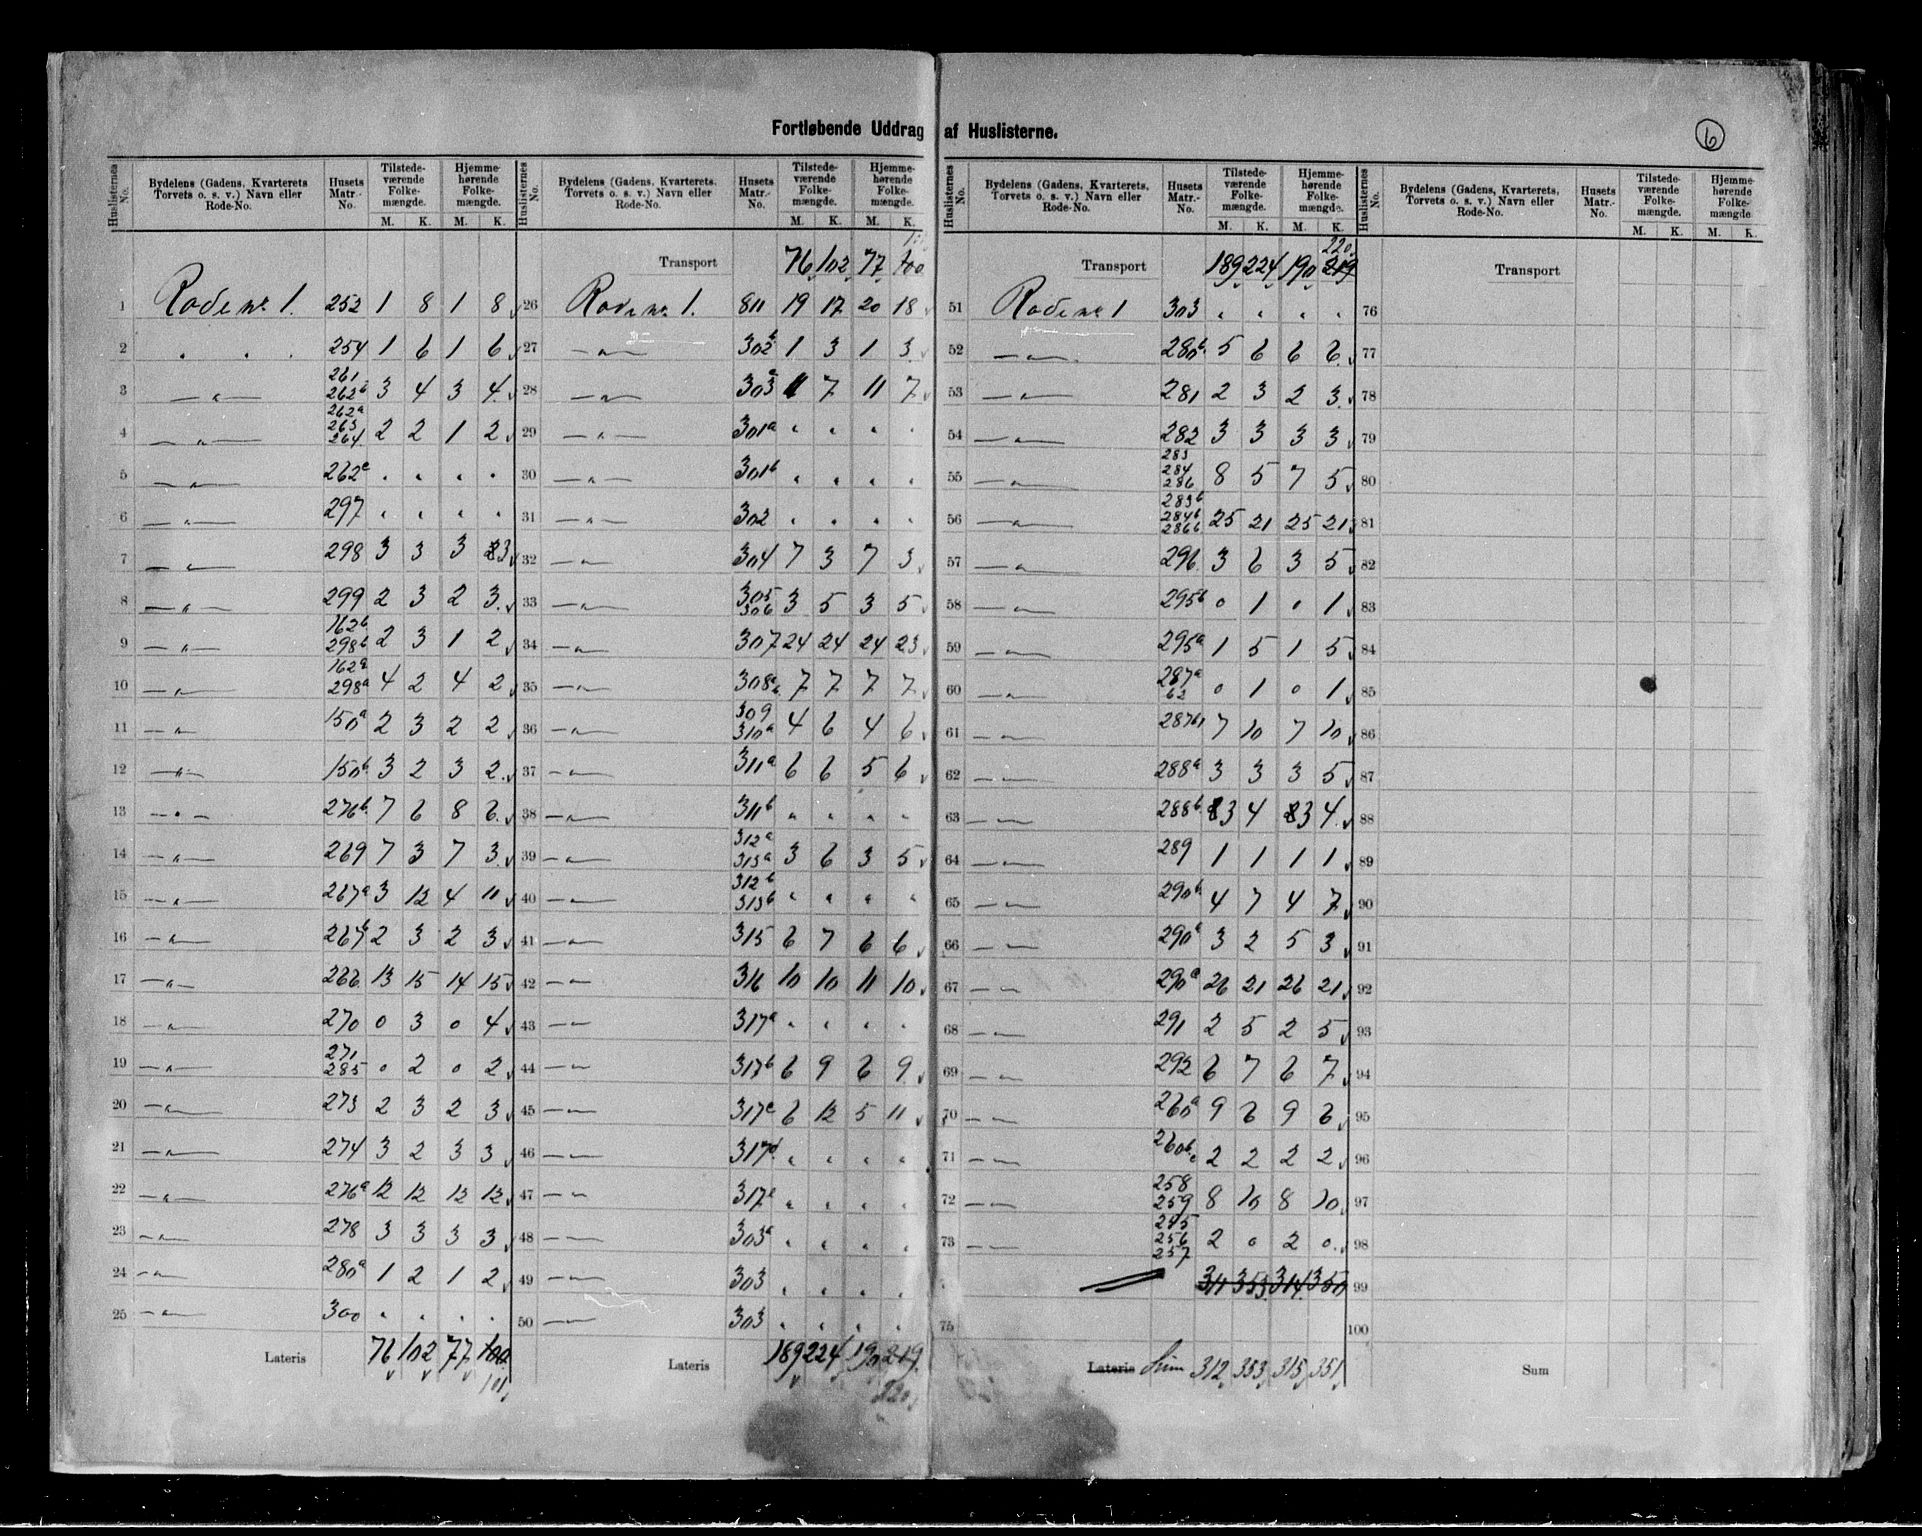 Fortløbende Uddrag af Huslisterne.
6
Huslisternes No. Bydelens (Gadens, Kvarterets, Torvets o. s. v.) Navn eller Rode-No. Husets Matr.-No. Tilstedeværende Folkemængde. M. K. Hjemmehørende Folkemængde. M. K.
1 Rode no 1. 253 1 8 1 8
2 " " " 254 1 6 1 6
3 —"— 261 262b 3 4 3 4
4 —"— 262a 263 264 2 2 1 2
5 —"— 262c " " " "
6 —"— 297 " " " "
7 —"— 298 3 3 3 3
8 —"— 299 2 3 2 3
9 —"— 162b 298b 2 3 1 2
10 —"— 162a 298a 4 2 4 2
11 —"— 150a 2 3 2 2
12 —"— 150b 3 2 3 2
13 —"— 276b 7 6 8 6
14 —"— 269 7 3 7 3
15 —"— 267a 3 12 4 11
16 —"— 267b 2 3 2 3
17 —"— 266 13 15 14 15
18 —"— 270 0 3 0 4
19 —"— 271 285 0 2 0 2
20 —"— 273 2 3 2 3
21 —"— 274 3 2 3 3
22 —"— 276a 12 12 12 12
23 —"— 278 3 3 3 3
24 —"— 280a 1 2 1 2
25 —"— 300 " " " "
Lateris 76 102 77 100 101
Huslisternes No. Bydelens (Gadens, Kvarterets, Torvets o. s. v.) Navn eller Rode-No. Husets Matr.-No. Tilstedeværende Folkemængde. M. K. Hjemmehørende Folkemængde. M. K.
Transport 76 102 77 100
26 Rode no 1. 811 19 17 20 18
27 —"— 302b 1 3 1 3
28 —"— 303a 11 7 11 7
29 —"— 301a " " " "
30 —"— 301b " " " "
31 —"— 302 " " " "
32 —"— 304 7 3 7 3
33 —"— 305 306 3 5 3 5
34 —"— 307 24 24 24 23
35 —"— 308a 7 7 7 7
36 —"— 309 310a 4 6 4 6
37 —"— 311a 6 6 5 6
38 —"— 311b " " " "
39 —"— 312a 313a 3 6 3 5
40 —"— 312b 313b " " " "
41 —"— 315 6 7 6 6
42 —"— 316 10 10 11 10
43 —"— 317a " " " "
44 —"— 317b 6 9 6 9
45 —"— 317c 6 12 5 11
46 —"— 317d " " " "
47 —"— 317e " " " "
48 —"— 303a " " " "
49 —"— 303 " " " "
50 —"— 303 " " " "
Lateris 189 224 190 219 220
Huslisternes No. Bydelens (Gadens, Kvarterets, Torvets o. s. v.) Navn eller Rode-No. Husets Matr.-No. Tilstedeværende Folkemængde. M. K. Hjemmehørende Folkemængde. M. K.
Transport 189 224 190 219 220
51 Rode no 1 303 " " " "
52 —"— 280b 5 6 6 6
53 —"— 281 2 3 2 3
54 —"— 282 3 3 3 3
55 —"— 283 284 286 8 5 7 5
56 —"— 283b 284b 286b 25 21 25 21
57 —"— 296 3 6 3 5
58 —"— 295b 0 1 0 1
59 —"— 295a 1 5 1 5
60 —"— 287a 62 0 1 0 1
61 —"— 287b 7 10 7 10
62 —"— 288a 3 3 3 5
63 —"— 288b 3 4 3 4
64 —"— 289 1 1 1 1
65 —"— 290b 4 7 4 7
66 —"— 290c 3 2 5 3
67 —"— 290a 26 21 26 21
68 —"— 291 2 5 2 5
69 —"— 292 6 7 6 7
70 —"— 260a 9 6 9 6
71 —"— 260b c 2 2 2 2
72 —"— 258 259 8 10 8 10
73 —"— 256 257 2 0 2 0
311 353 314 350
75
Lateris Sum 312 353 315 351
Huslisternes No. Bydelens (Gadens, Kvarterets, Torvets o. s. v.) Navn eller Rode-No. Husets Matr.-No. Tilstedeværende Folkemængde. M. K. Hjemmehørende Folkemængde. M. K.
Transport
76
77
78
79
80
81
82
83
84
85
86
87
88
89
90
91
92
93
94
95
96
97
98
99
100
Sum